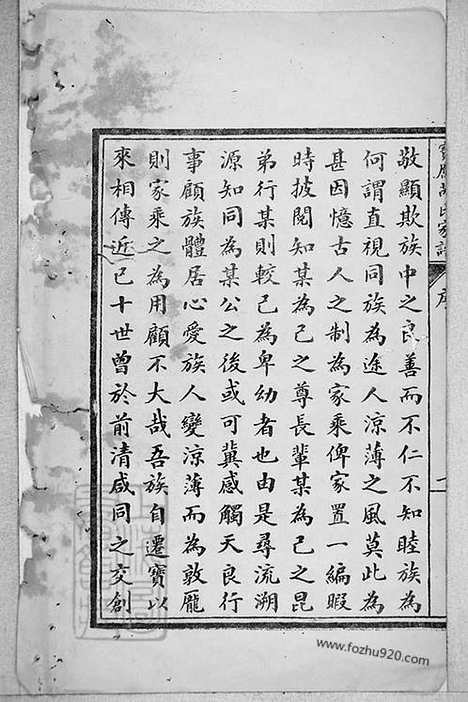 寶應胡氏家譜
序
二
敬顯欺族中之良善而不仁不知睦族為
何謂直視同族為途人涼薄之風莫此為
甚因憶古人之制為家乘俾家置一編暇
時披閱知某為己之尊長輩某為己之昆
弟行某則較己為卑幼者也由是尋流溯
源知同為某公之後或可冀感觸天良行
事顧族體居心愛族人變涼薄而為敦龐
則家乘之為用顧不大哉吾族自遷寶以
來相傳近已十世曾於前清咸同之交創
www.fozhu920.com